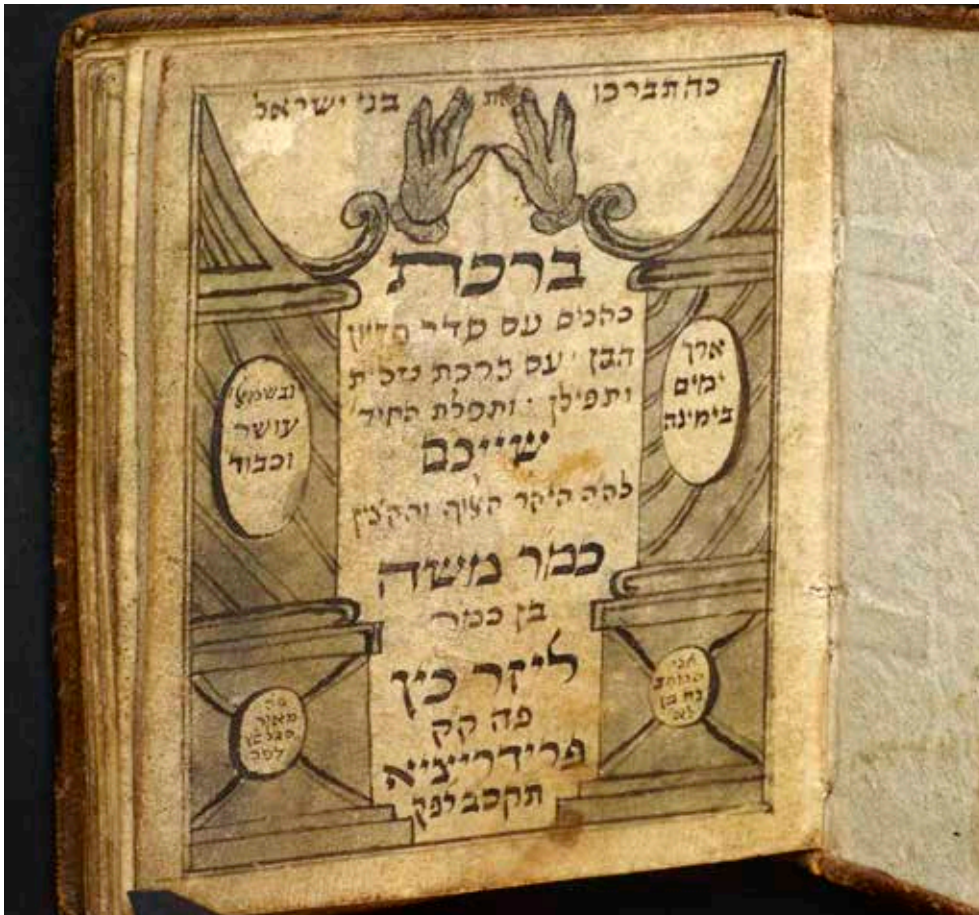 כה תברכו את בני ישראל
ברכת
כהנים עם סדר פדיון
הבן · עם ברכת
ותפילן · ותפלת
שייכם
להה היקר והקצין
כמר משה
בן כמר
ליזר כץ
פה קק
פרידרייציא
תקכב לפק
ארך
ימים
בימינה
ובשמאל׳
עושר
וכבוד
אני
הכותב
נח בן